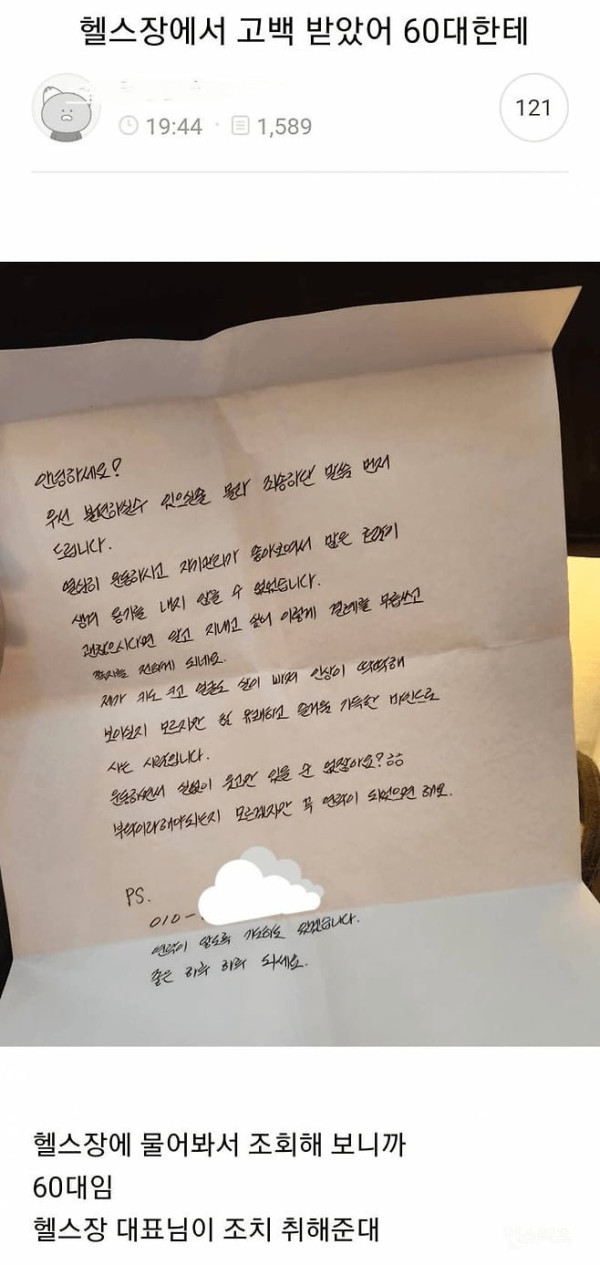 헬스장에서 고백 받았어 60대한테
19:44 · 1,589
121
안녕하세요?
우선 불편하실수 있으실줄 몰라 죄송하단 말씀 먼저
드립니다.
열심히 운동하시고 자기관리가 좋아보여서 많은 호감이
생겨 용기를 내지 않을 수 없었습니다.
괜찮으시다면 알고 지내고 싶어 이렇게 결례를 무릅쓰고
쪽지를 전하게 되네요.
제가 키도 크고 얼굴도 살이 빠져 인상이 딱딱해
보이실지 모르지만 참 유쾌하고 즐거움 가득한 마인드로
사는 사람입니다.
운동하면서 실없이 웃고만 있을 순 없잖아요? ㅎㅎ
부탁이라해야되는지 모르겠지만 꼭 연락이 되었으면 해요.
PS.
010-
연락이 않도록 기도하고 있겠습니다.
좋은 하루 하루 되세요.
헬스장에 물어봐서 조회해 보니까
60대임
헬스장 대표님이 조치 취해준대